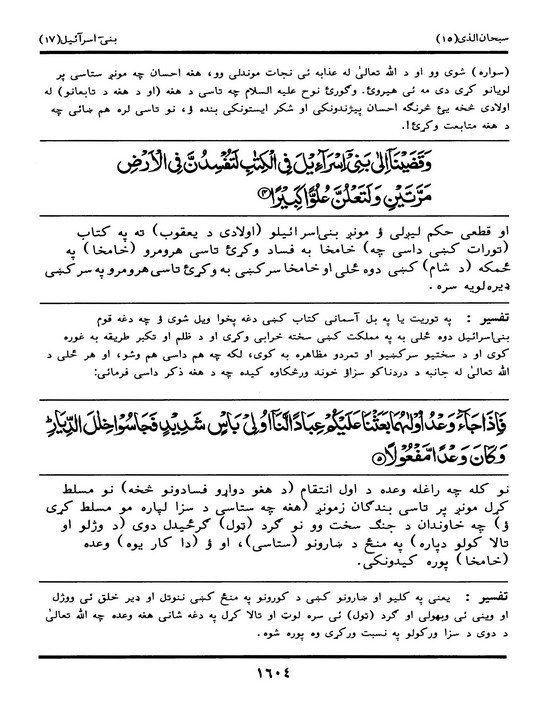 سبحان الذي (١٥)
بني اسرآئيل (١٧)
(سواره) شوی وو او د الله تعالیٰ له عذابه ئی نجات موندلی وو، هغه احسان چه مونږ ستاسی پر
لویانو کړی دی مه ئی هیروئ. وګورئ نوح علیه السلام چه تاسی د هغه (او د هغه د تابعانو) له
اولادی څخه یئ څرنګه احسان پیژندونکی او شکر ایستونکی بنده ؤ، نو تاسی لره هم ښائی چه
د هغه متابعت وکړئ!.
وَقَضَيْنَآ إِلٰى بَنِيْٓ إِسْرَآءِيْلَ فِي الْكِتٰبِ لَتُفْسِدُنَّ فِي الْأَرْضِ
مَرَّتَيْنِ وَلَتَعْلُنَّ عُلُوًّا كَبِيْرًا ۝٤
او قطعی حکم لیږلی ؤ مونږ بنی‌اسرائیلو (اولادی د یعقوب) ته په کتاب
(تورات کښی داسی چه) خامخا به فساد وکړئ تاسی هرومرو (خامخا) په
ځمکه (د شام) کښی دوه ځلی او خامخا سرکښی به وکړئ تاسی هرومرو په سرکښی
ډیره لویه سره.
تفسیر : په توریت یا په بل آسمانی کتاب کښی دغه پخوا ویل شوی ؤ چه دغه قوم
بنی‌اسرائیل دوه ځلی به په مملکت کښی سخته خرابی وکړی او د ظلم او تکبر طریقه به غوره
کوی او د سختیو سرکښیو او تمردو مظاهره به کوی، لکه چه هم داسی هم وشو، او هر ځلی د
الله تعالیٰ له جانبه د دردناکو سزاؤ خوند ورڅکاوه کیده چه د هغه ذکر داسی فرمائی:
فَإِذَا جَآءَ وَعْدُ أُوْلٰىهُمَا بَعَثْنَا عَلَيْكُمْ عِبَادًا لَّنَآ أُولِيْ بَأْسٍ شَدِيْدٍ فَجَاسُوْا خِلٰلَ الدِّيَارِ ۭ
وَكَانَ وَعْدًا مَّفْعُوْلًا ۝٥
نو کله چه راغله وعده د اول انتقام (د هغو دواړو فسادونو څخه) نو مسلط
کړل مونږ پر تاسی بندگان زمونږ (هغه چه ستاسی د سزا لپاره مو مسلط کړی
ؤ) چه خاوندان د جنګ سخت وو نو گرد (ټول) گرځیدل دوی (د وژلو او
تالا کولو دپاره) په منځ د ښارونو (ستاسی)، او ؤ (دا کار یوه) وعده
(خامخا) پوره کیدونکی.
تفسیر : یعنی په کلیو او ښارونو کښی د کورونو په منځ کښی ننوتل او ډیر خلق ئی ووژل
او وینی ئی وبهولی او گرد (ټول) ئی سره لوټ او تالا کړل په دغه شانی هغه وعده چه الله تعالیٰ
د دوی د سزا ورکولو په نسبت ورکړی وه پوره شوه.
١٦٠٤